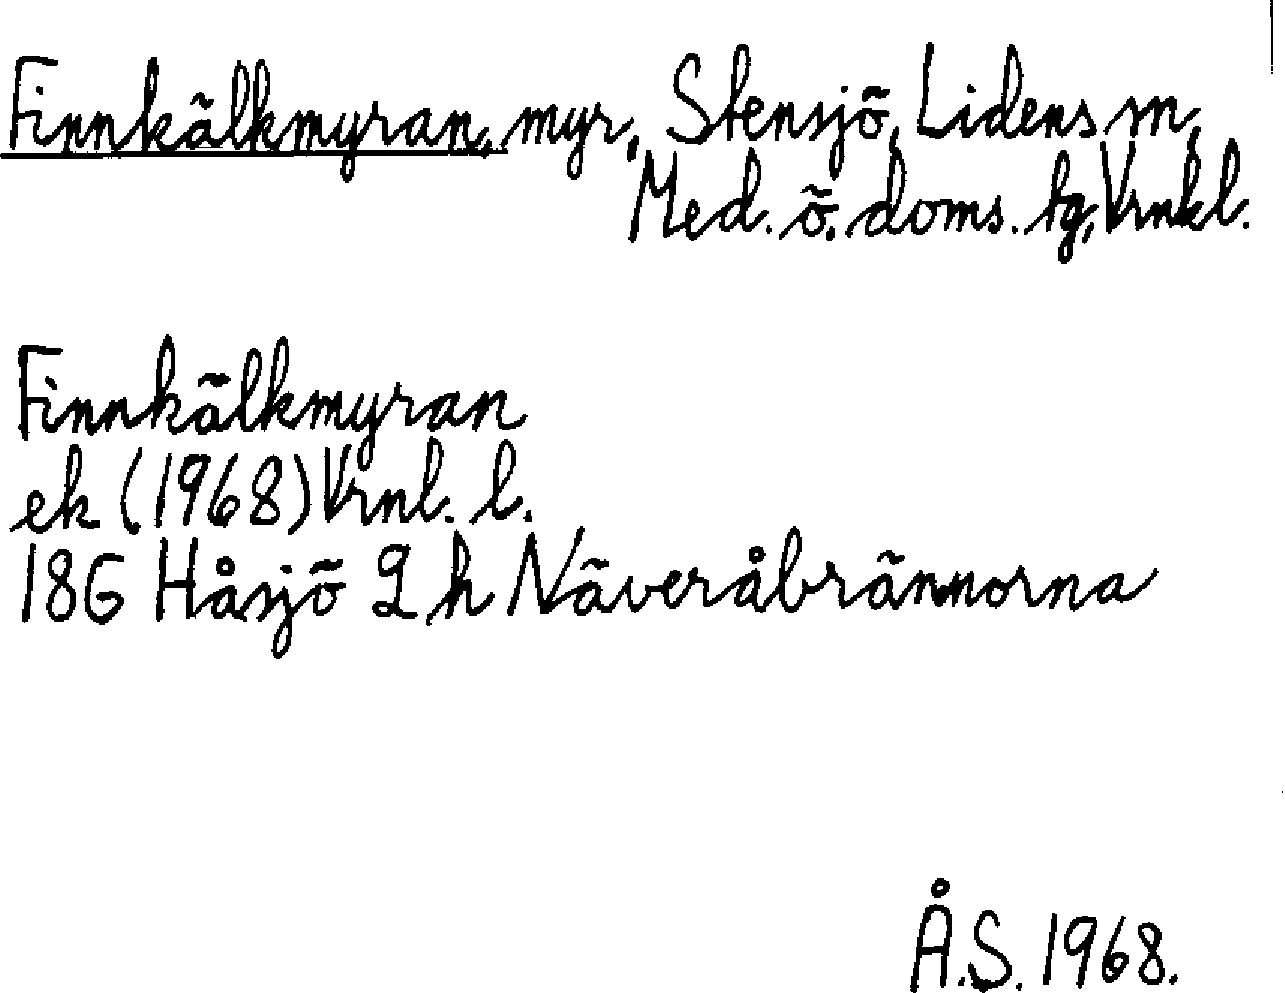 Finnkälkmyran, myr, Stensjö, Lidens sn,
Med. ö. doms. tg, Vrnkl.
Finnkälkmyran
ek (1968) Vrnl. l.
18G Håsjö 2 h Näveråbrännorna
Å.S. 1968.